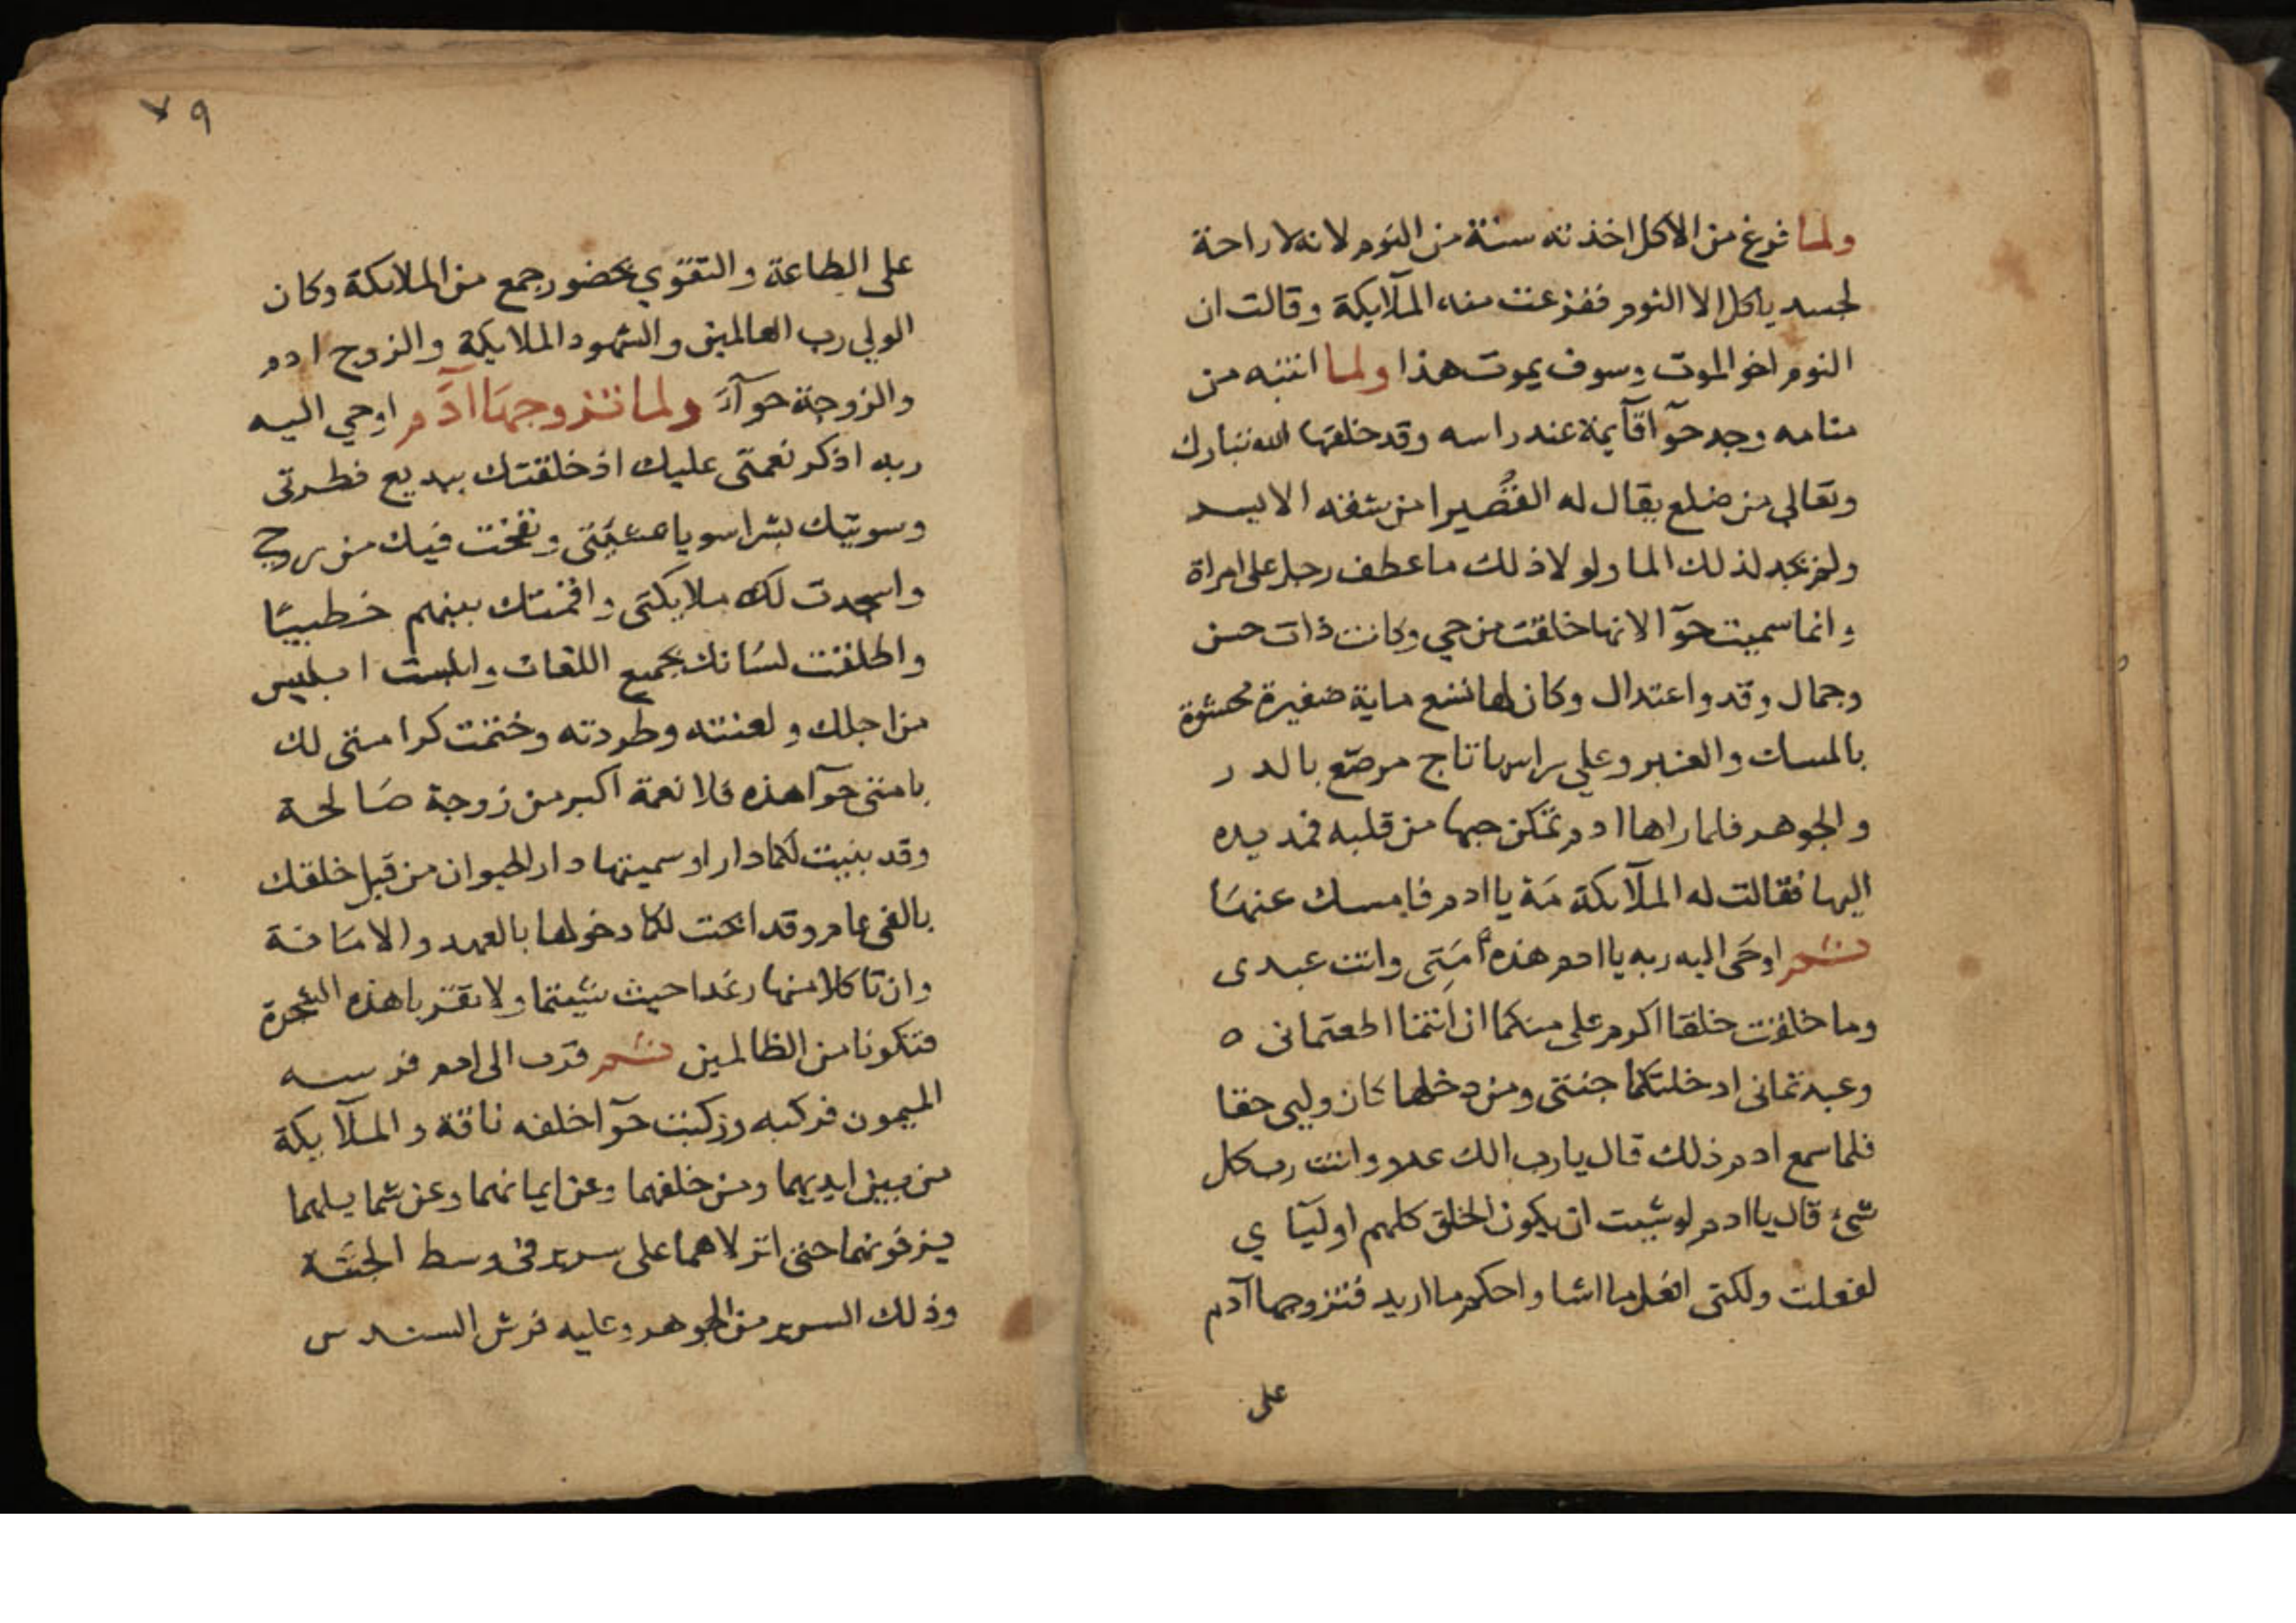 ولما فرغ من الاكل اخذته سنة من النوم لانه لا راحة
لجسد ياكل الا النوم ففزعت منه الملآيكة وقالت ان
النوم اخو الموت وسوف يموت هذا ولما انتبه من
منامه وجد حوآ قآيمة عند راسه وقد خلقها الله تبارك
وتعالي من ضلع يقال له القصيرا من شقه الايسر
ولم يجد لذلك الما ولولا ذلك ما عطف رجل على امراة
وانما سميت حوآ لانها خلقت من حي وكانت ذات حسن
وجمال وقد واعتدال وكان لها تسع ماية ضفيرة محشوة
بالمسك والعنبر وعلي راسها تاج مرصّع بالدر
والجوهر فلما راها ادم تمكن حبها من قلبه فمد يده
اليها فقالت له الملآيكة مَهْ يا ادم فامسك عنها
ثم اوحَى اليه ربه يا ادم هذه أمَتِى وانت عبدى
وما خلقت خلقا اكرم على منكما ان انتما اطعتمانى ه
وعبدتمانى ادخلتكما جنتى ومن دخلها كان وليى حقا
فلما سمع ادم ذلك قال يا رب الك عدو وانت رب كل
شئ قال يا ادم لو شيت ان يكون الخلق كلهم اوليآى
لفعلت ولكنى افعل ما اشا واحكم ما اريد فتزوجها آدم
على
٧٩
على الطاعة والتقوي بحضور جمع من الملايكة وكان
الولي رب العالمين والشهود الملايكة والزوج ادم
والزوجة حوآء ولما تزوجها آدم اوحي اليه
ربه اذكر نعمتى عليك اذ خلقتك ببديع فطرتى
وسويتك بشرا سويا على ونفخت فيك من روحى
واسجدت لك ملايكتى واقمتك بينهم خطيبًا
واطلقت لسانك بجميع اللغات وابلست ابليس
من اجلك ولعنته وطردته وختمت كرامتى لك
بامتى حوآ هذه فلا نعمة اكبر من زوجة صالحة
وقد بنيت لكما دارا وسميتها دار الحيوان من قبل خلقك
بالفى عام وقد ابحت لكما دخولها بالعهد والامانة
وان تاكلا منها رغدا حيث شيتما ولا تقربا هذه الشجرة
فتكونا من الظالمين ثم قرب الى ادم فرسه
الميمون فركبه وركبت حوآ خلفه ناقة والملآيكة
من بين ايديهما ومن خلفهما وعن ايمانهما وعن شمايلهما
يزفونهما حتى انزلاهما على سرير فى وسط الجنّة
وذلك السرير من الجوهر وعليه فرش السندس